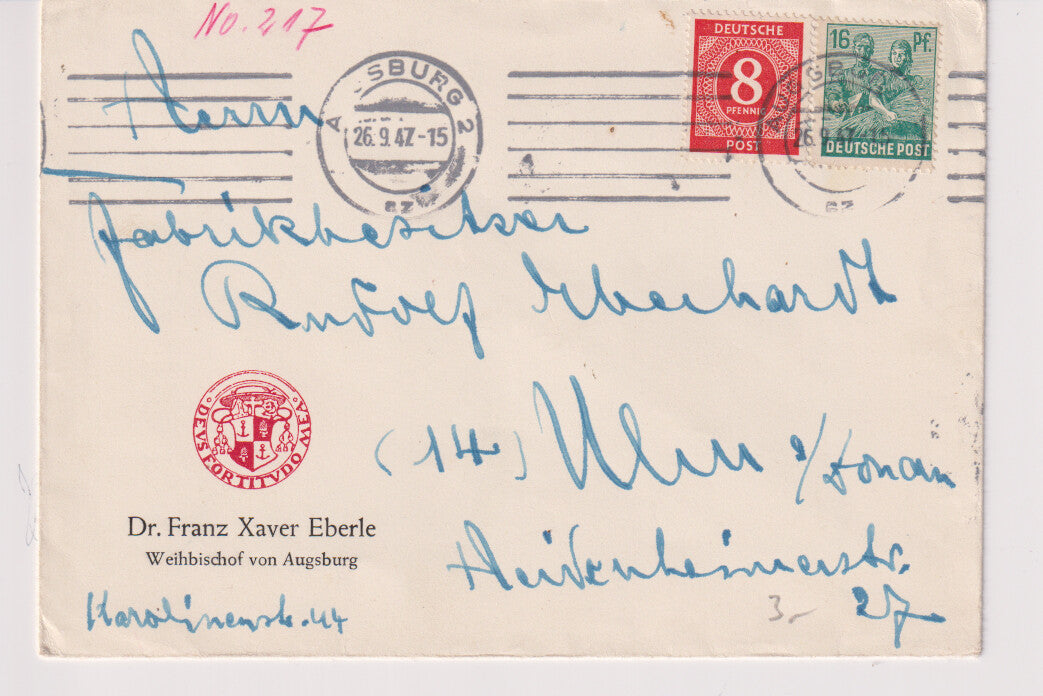 No. 217
DEUTSCHE
8
PFENNIG
POST
16 Pf.
DEUTSCHE POST
AUGSBURG 2
26.9.47.-15
az
26.9.47.-15
az
Herrn
Fabrikbesitzer
Rudolf Eberhardt
(14) Ulm a/Donau
Heidenheimerstr.
27
DEVS FORTITVDO MEA
Dr. Franz Xaver Eberle
Weihbischof von Augsburg
Karolinenstr. 44
3.-